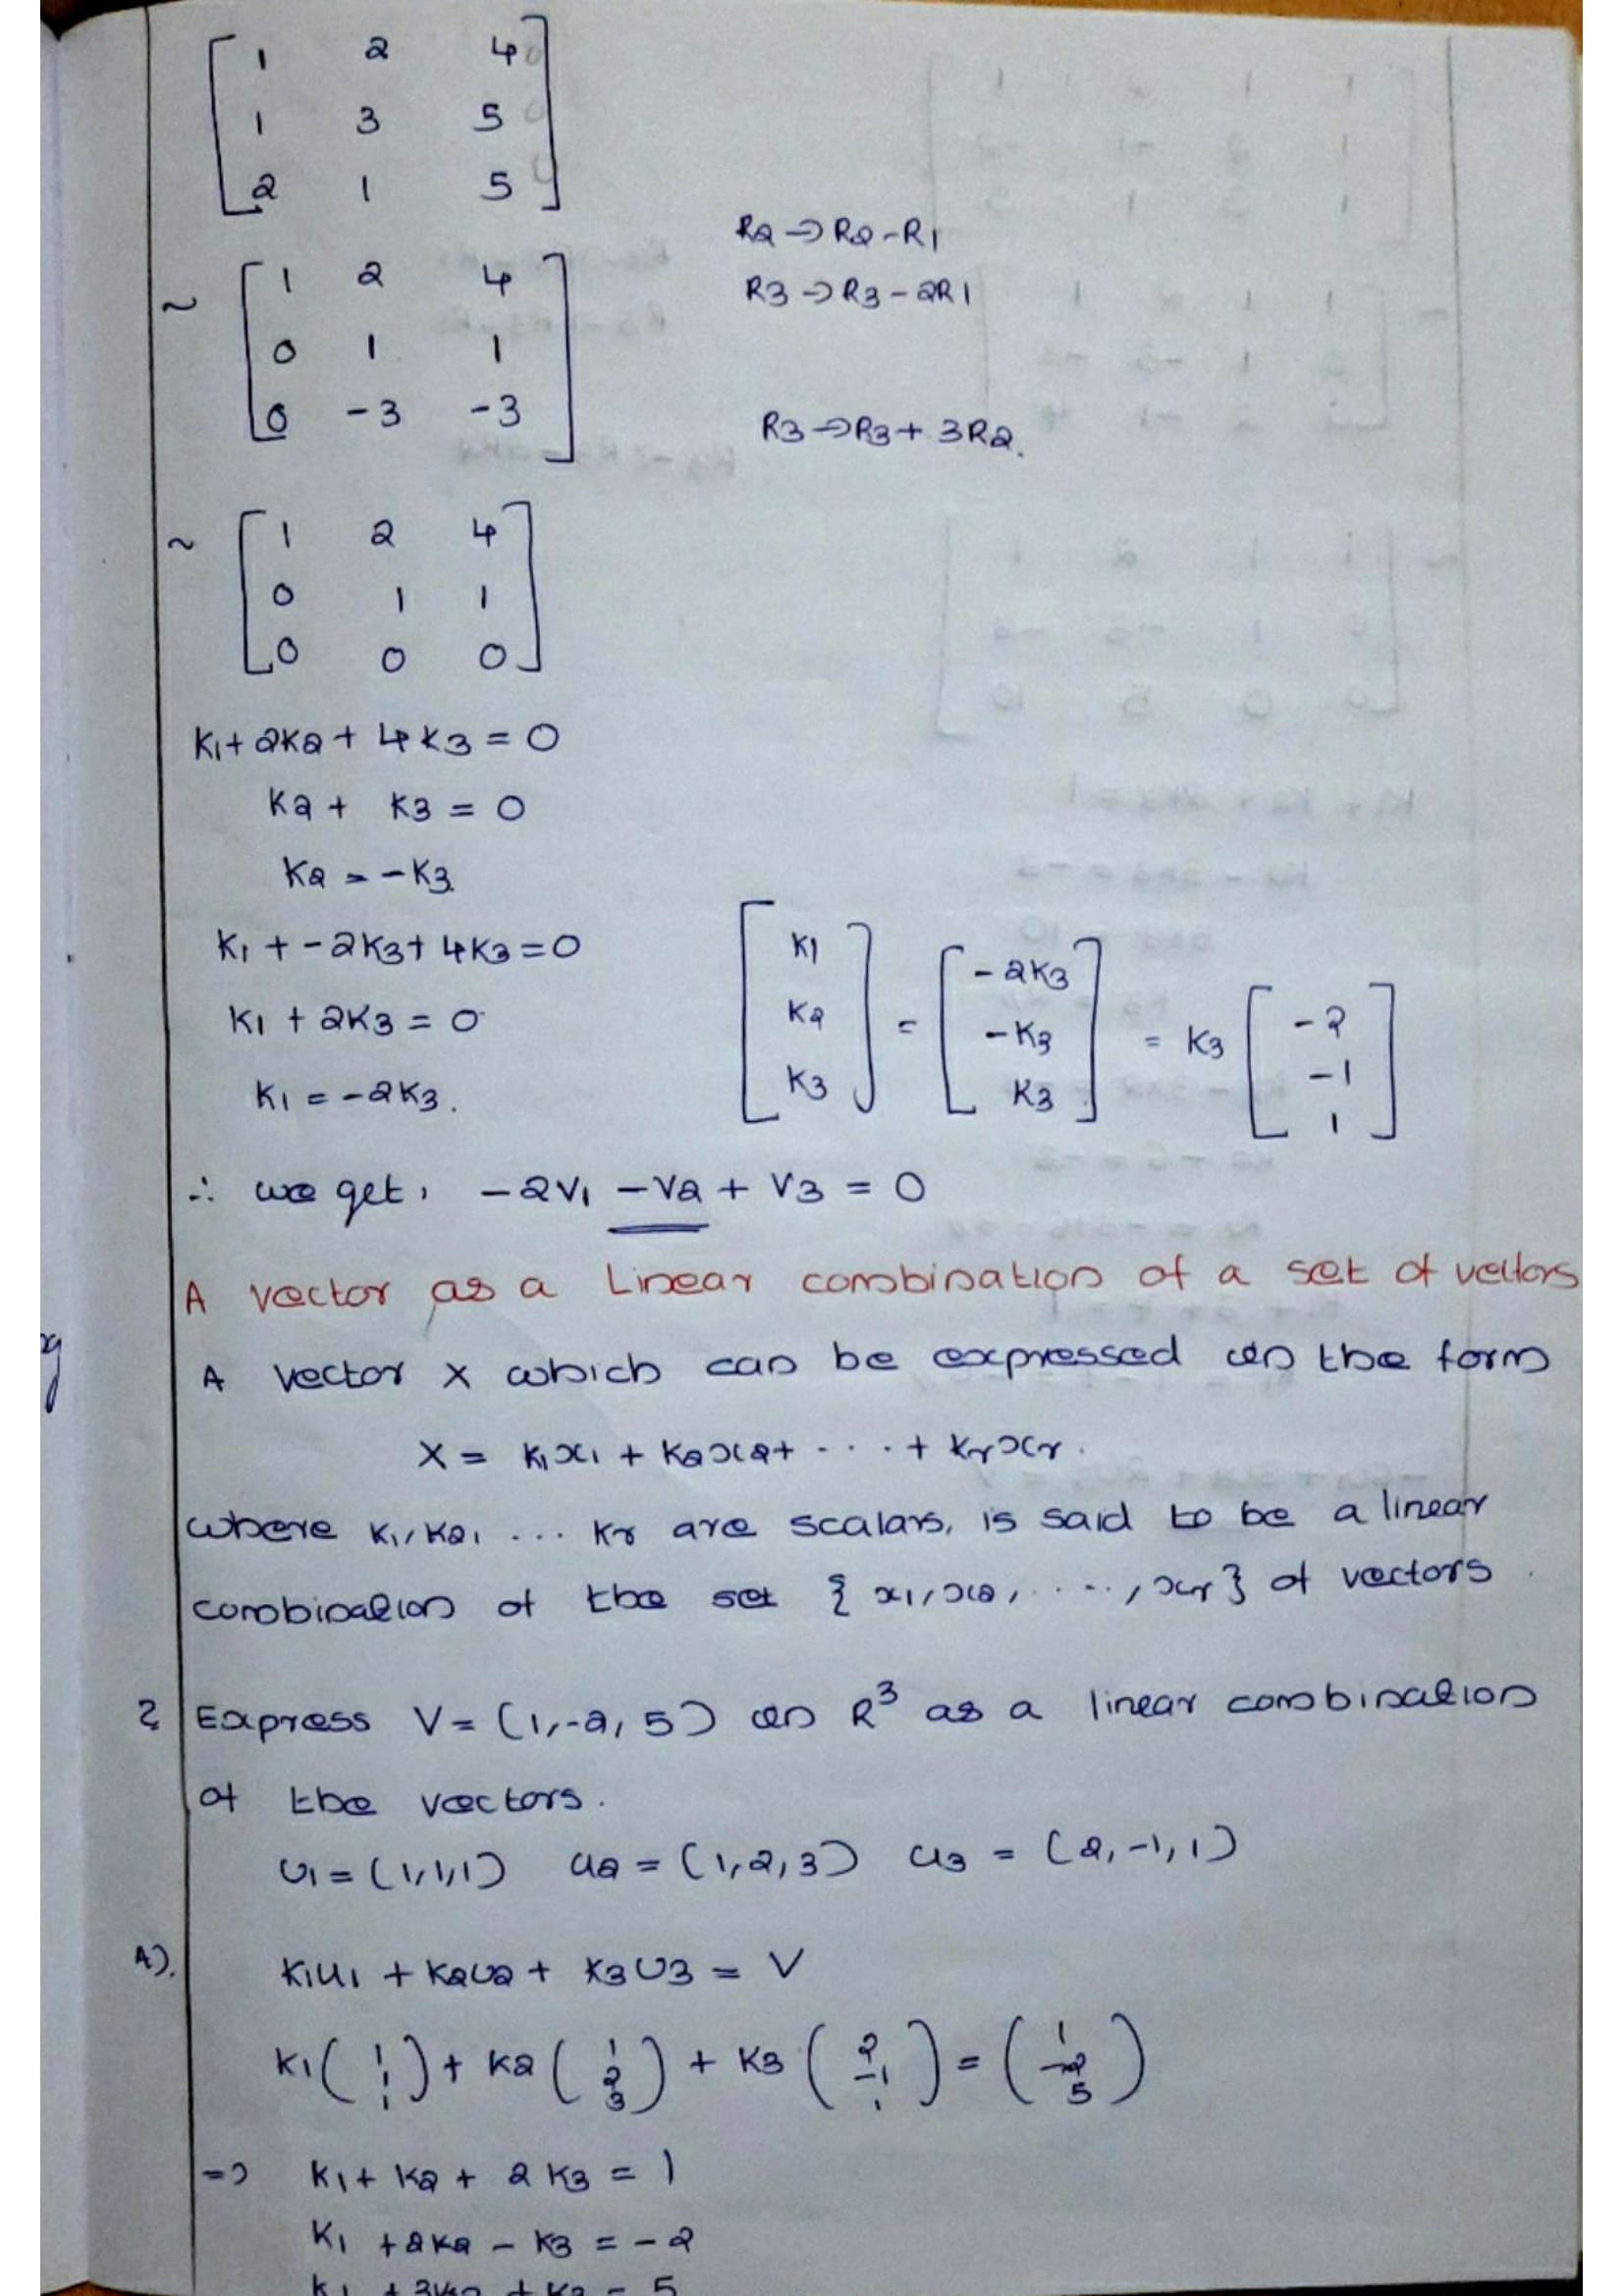 1 2 4
1 3 5
2 1 5
R2 → R2 - R1
R3 → R3 - 2R1
~ 1 2 4
0 1 1
0 -3 -3
R3 → R3 + 3R2.
~ 1 2 4
0 1 1
0 0 0
K1 + 2K2 + 4K3 = 0
K2 + K3 = 0
K2 = -K3
K1 + -2K3 + 4K3 = 0
K1 + 2K3 = 0
K1 = -2K3.
[K1 K2 K3] = [-2K3 -K3 K3] = K3 [-2 -1 1]
∴ we get, -2V1 - V2 + V3 = 0
A vector as a Linear combination of a set of vectors
A vector X which can be expressed in the form
X = K1x1 + K2x2 + .... + Krxr.
where K1, K2, ... Kr are scalars, is said to be a linear
combination of the set {x1, x2, ...., xr} of vectors.
? Express V = (1, -2, 5) in R³ as a linear combination
of the vectors.
U1 = (1,1,1) U2 = (1,2,3) U3 = (2,-1,1)
A). K1U1 + K2U2 + K3U3 = V
K1(1 1 1) + K2(1 2 3) + K3(2 -1 1) = (1 -2 5)
=> K1 + K2 + 2K3 = 1
K1 + 2K2 - K3 = -2
K1 + 3K2 + K3 = 5